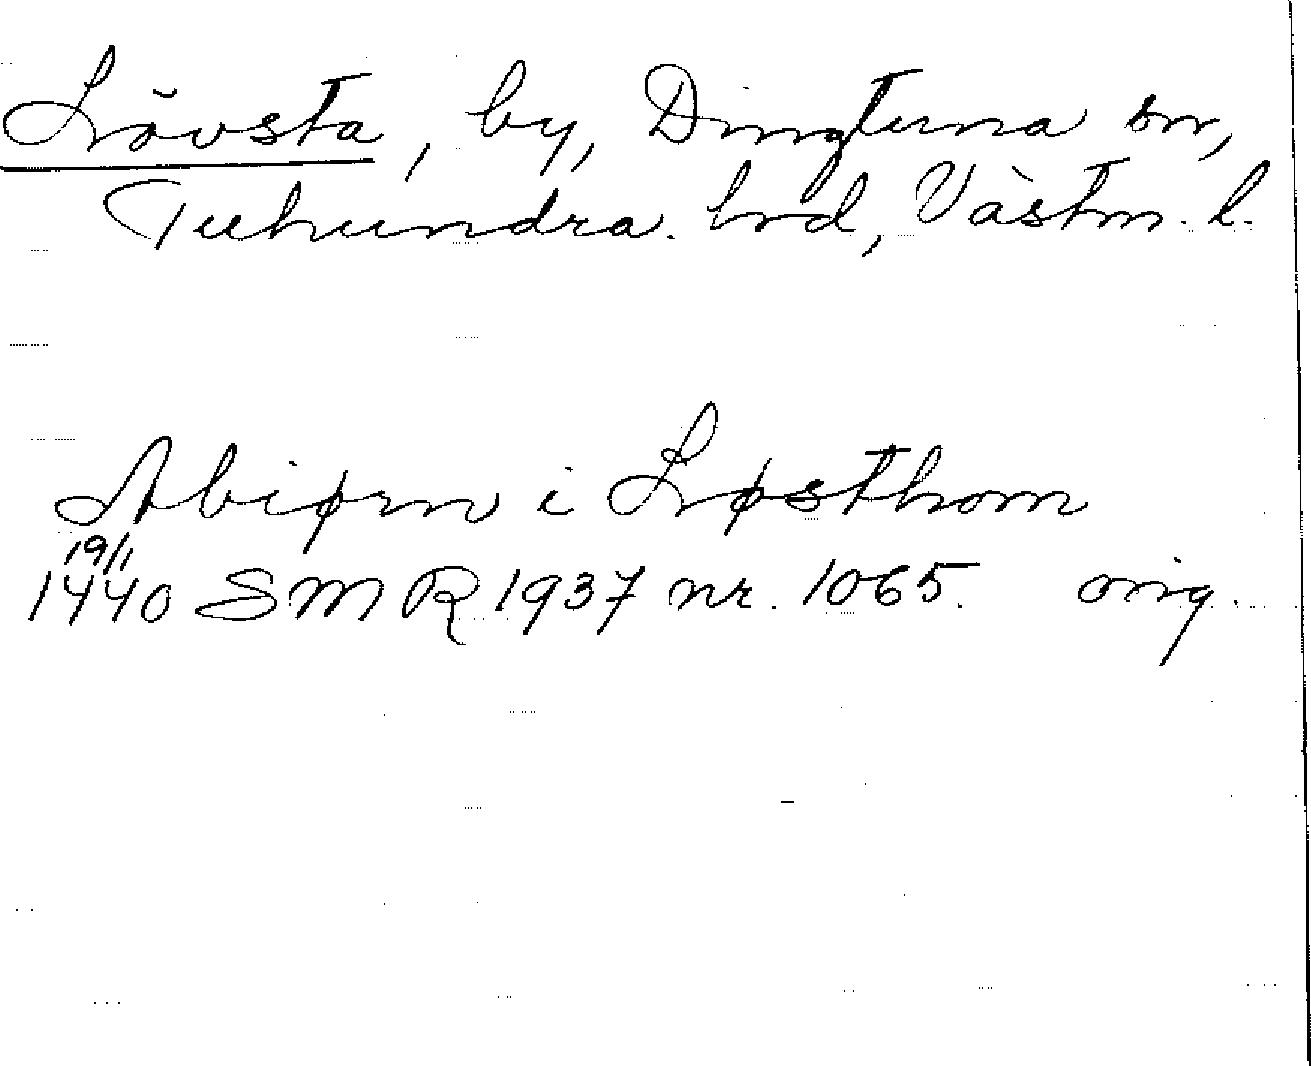 Lövsta, by, Dingtuna sn,
Tuhundra hrd, Västm. l.
Abiørn i Løsthom
19/1
1440 SMR 1937 nr. 1065. orig.